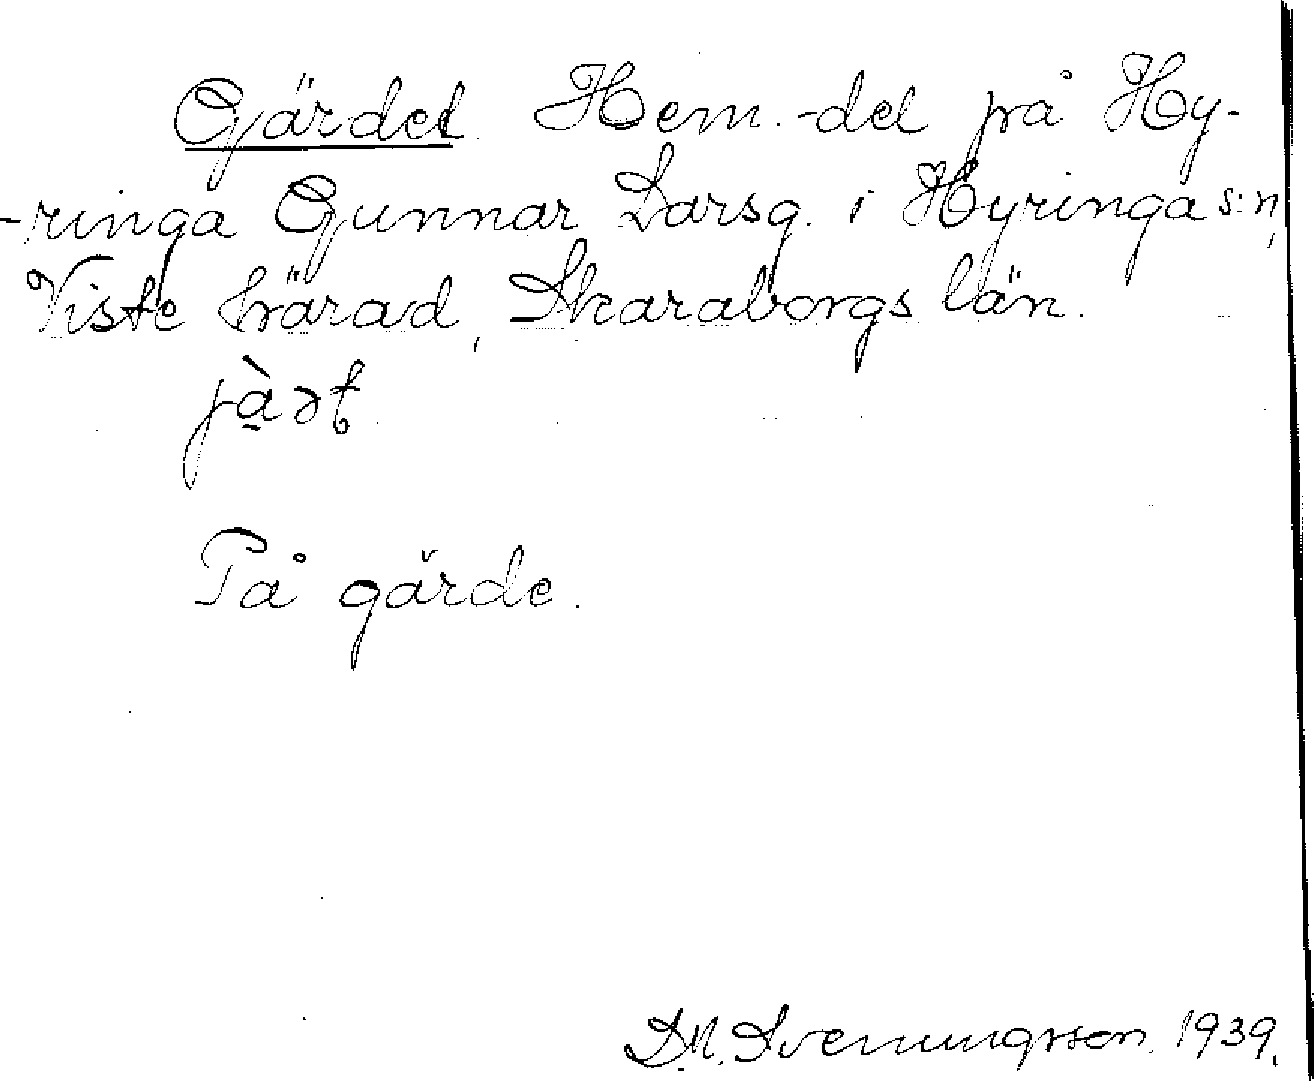 Gärdet. Hem.-del på Hy-
-ringa Gunnar Larsg. i Hyringa s:n,
Viste härad, Skaraborgs län.
På gärde.
D.N. Svenungsson. 1939.